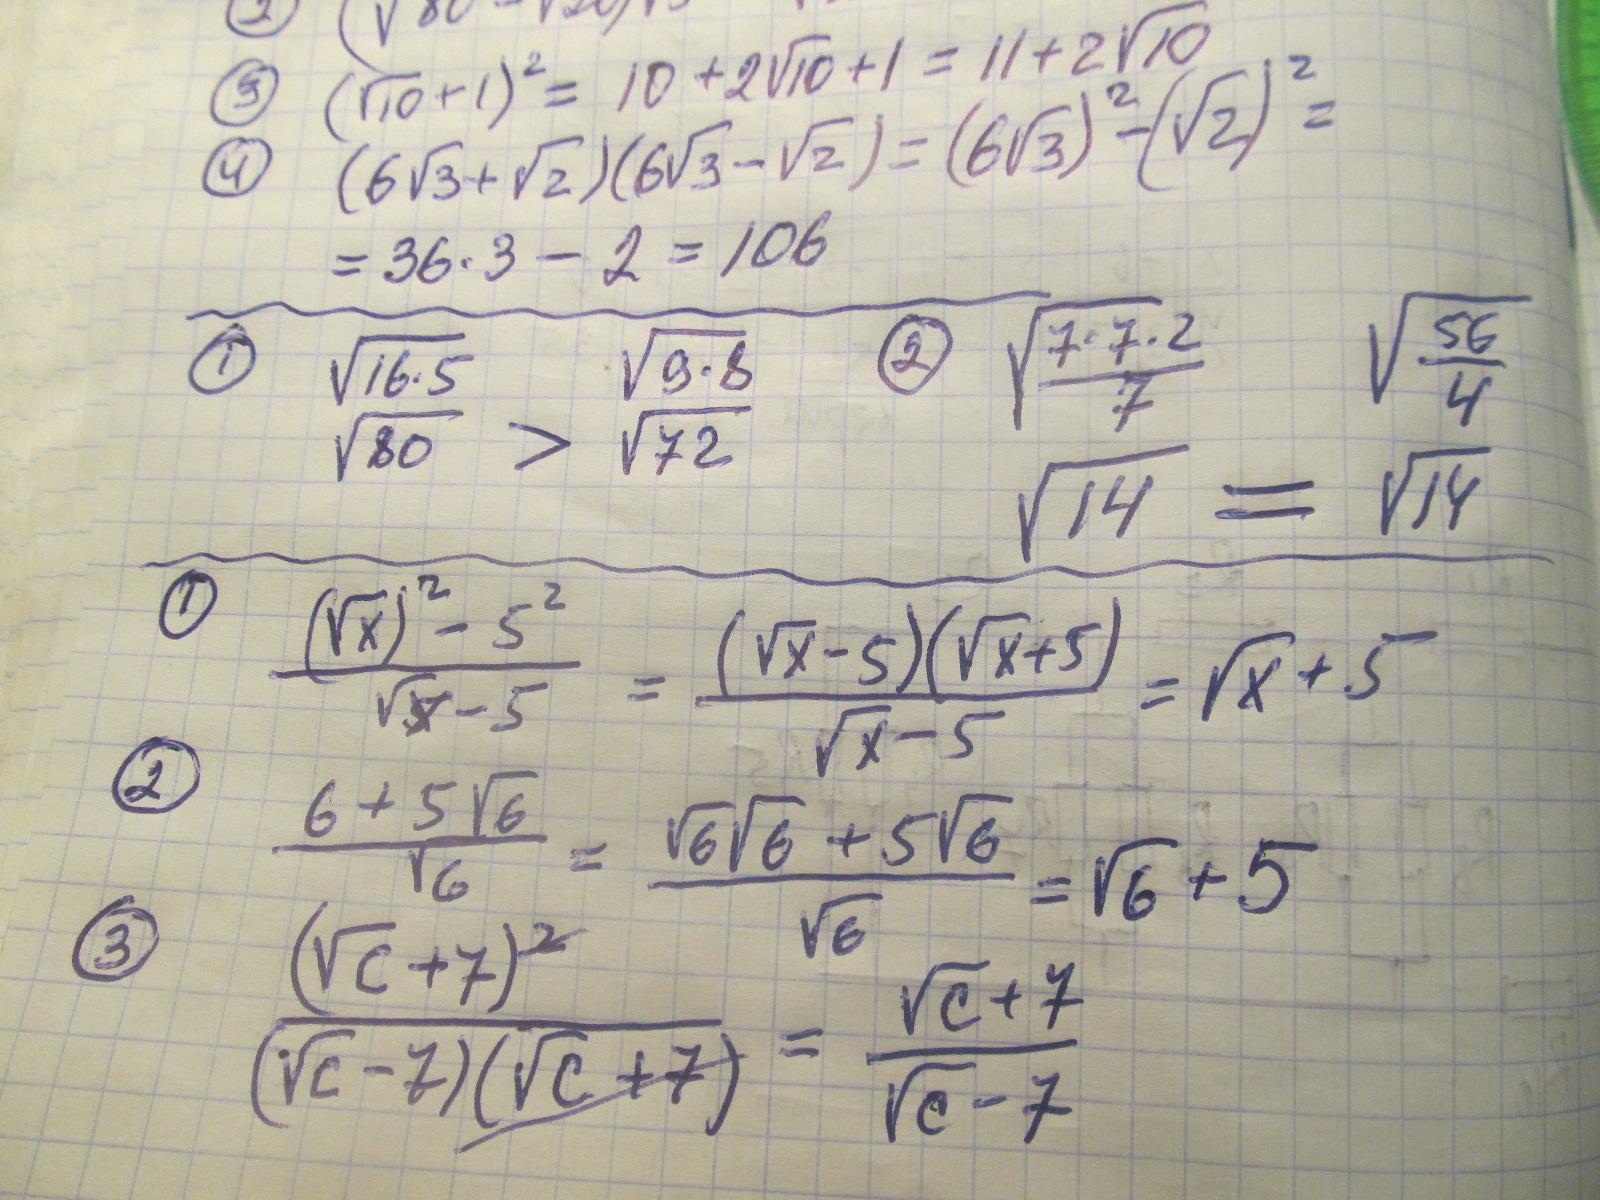 (√80 - √20)√5
③ (√10+1)² = 10+2√10+1 = 11+2√10
④ (6√3+√2)(6√3-√2) = (6√3)² - (√2)² =
= 36·3 - 2 = 106
① √16·5 √9·8
√80 > √72
② √(7·7·2/7) √(56/4)
√14 = √14
① ((√x)² - 5²)/(√x - 5) = ((√x-5)(√x+5))/(√x-5) = √x+5
② (6+5√6)/√6 = (√6√6+5√6)/√6 = √6+5
③ (√c+7)²/((√c-7)(√c+7)) = (√c+7)/(√c-7)